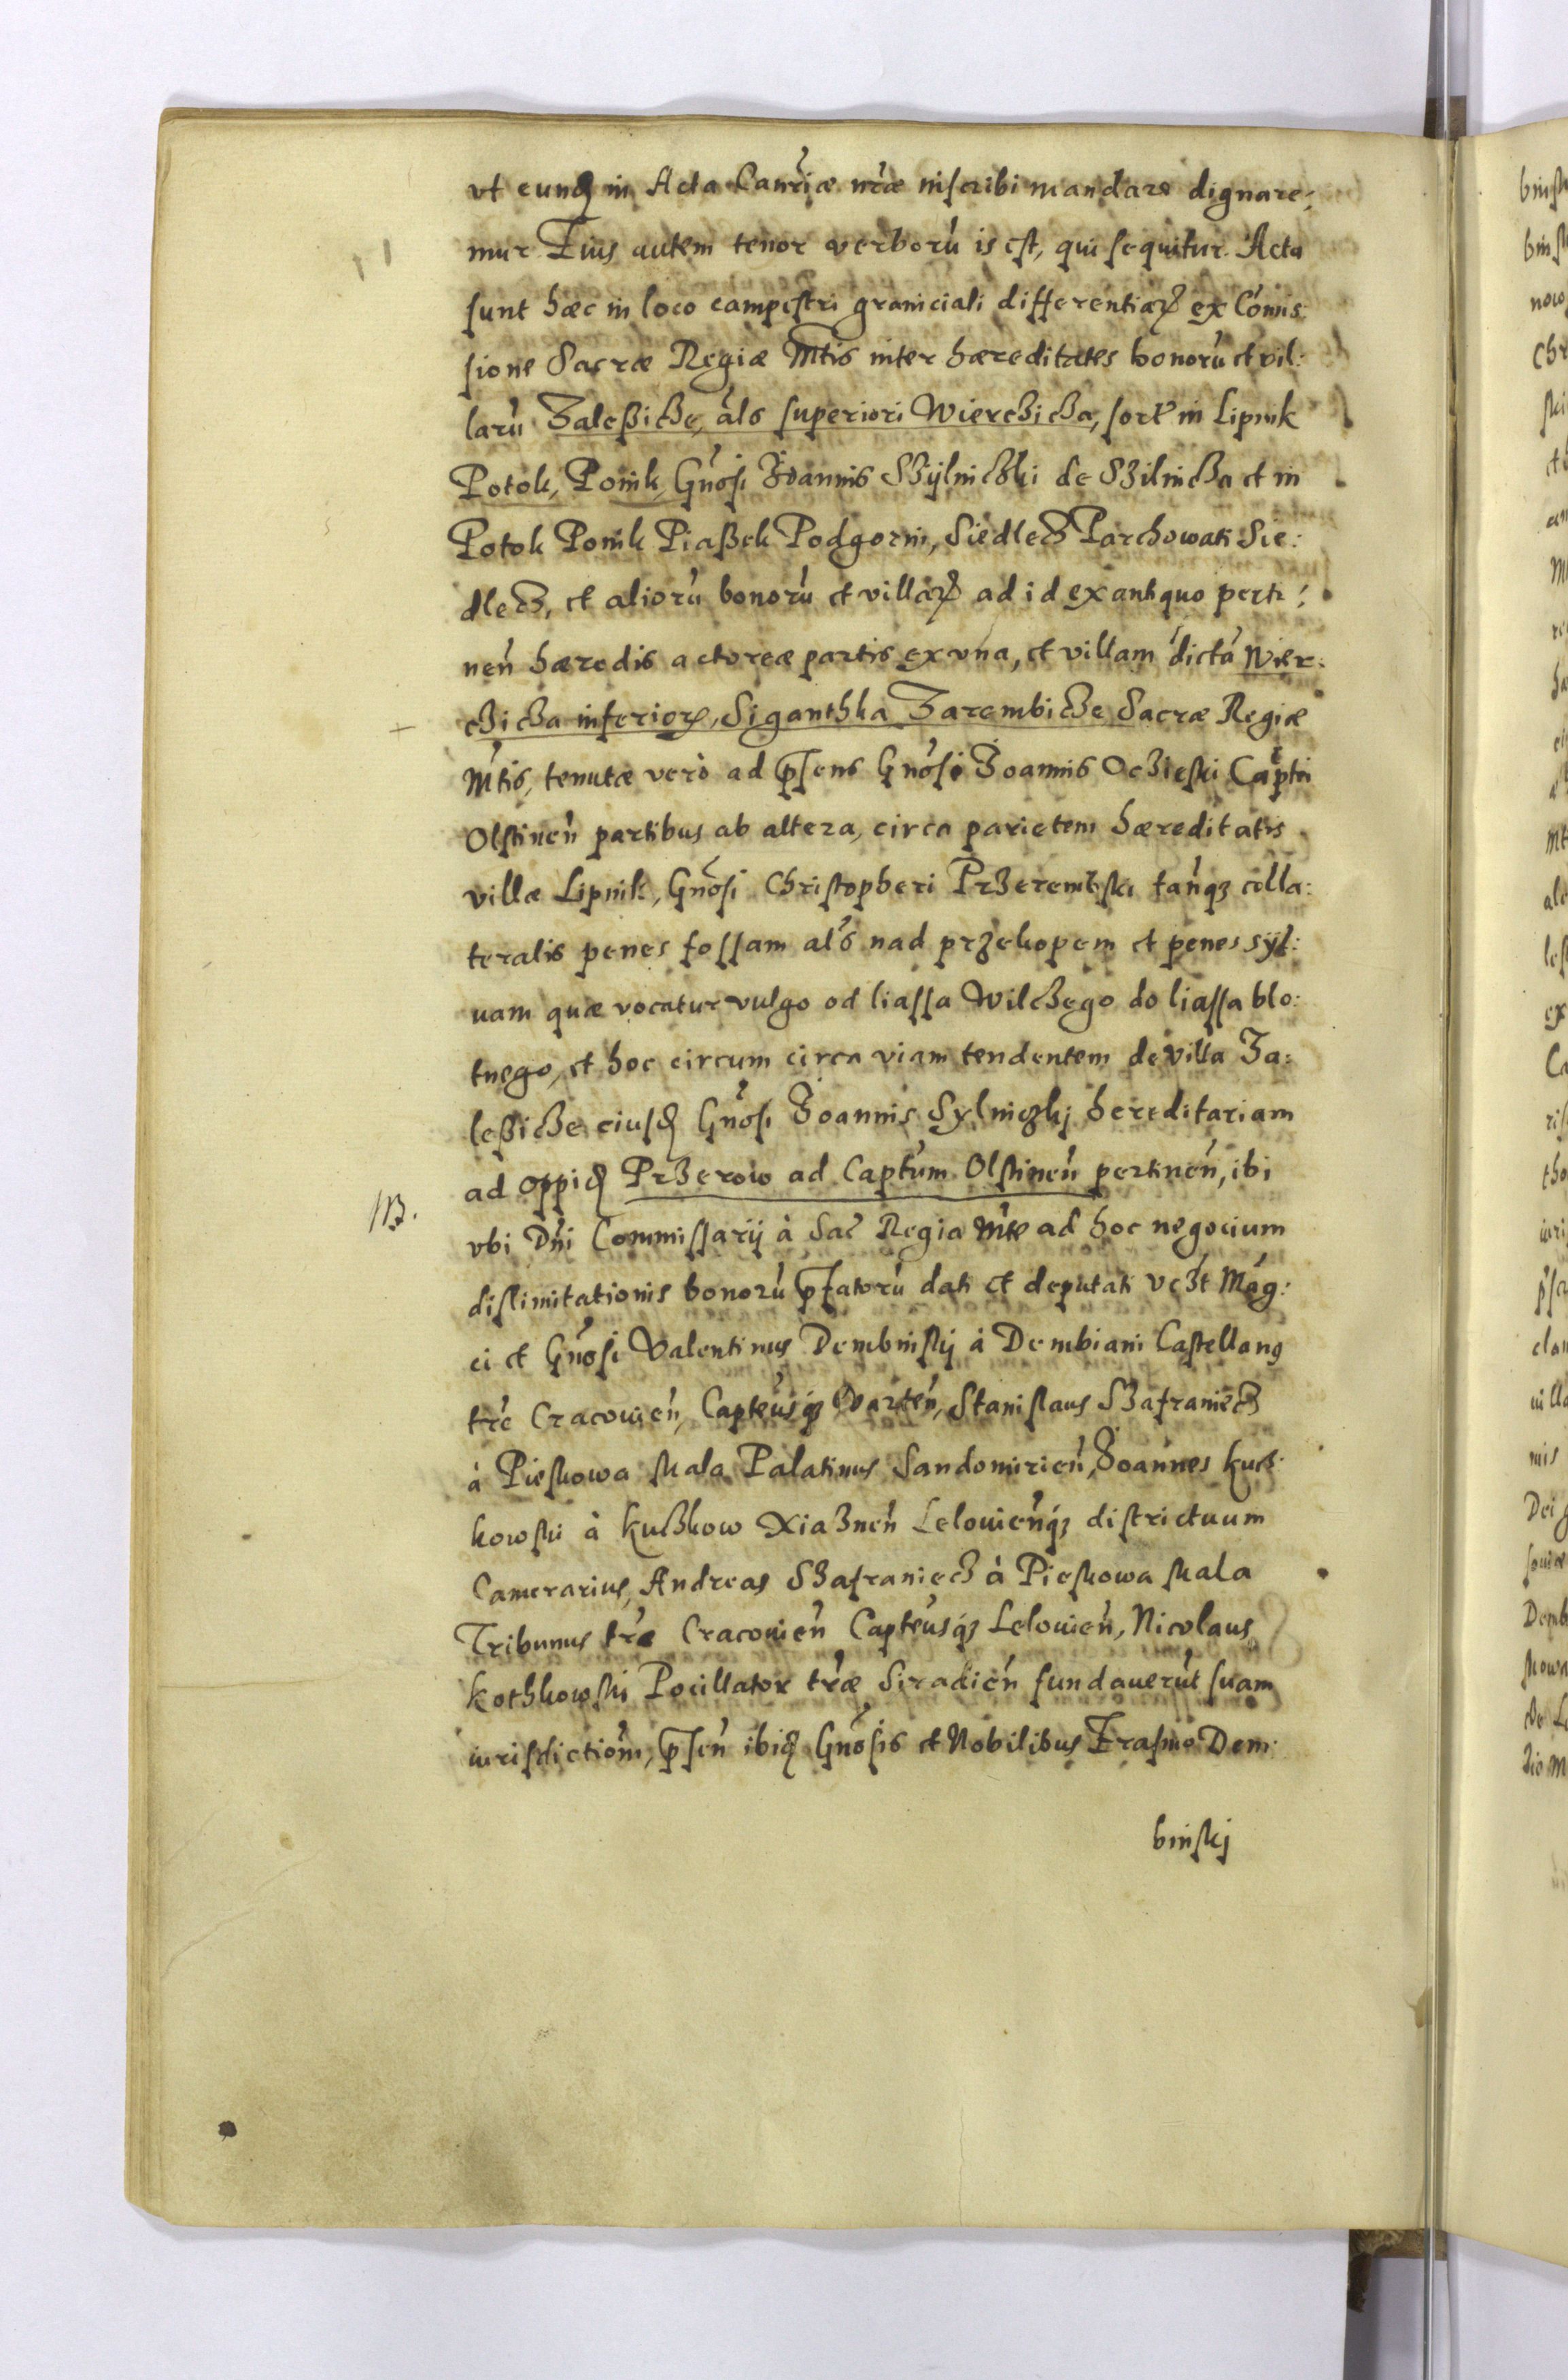 vt eund in Acta Canriæ nræ inscribi mandare dignare:
mur Eius autem tenor verborũ is est, qui sequitur. Acta
sunt hæc in loco campestri graniciali differentiaꝝ ex Com̃is:
sione Sacræ Regiæ Mtis inter hæreditates bonorũ et vil:
larũ Zaleßicze, als superiori Wierczicza, sorte in Lipnik
Potok, Ponik, Gnosi Joannis Szÿlniczki de Szilnicza et in
Potok Ponik Piaßek Podgorni, Siedlecz Parchowati Sie:
dlecz, et aliorũ bonorũ et villaꝝ ad id ex antiquo perti:
neñ hæredis actoreæ partis ex vna, et villam dictã Wier:
czicza inferioꝝ, Siganthka Zarembicze Sacræ Regiæ
Mtis, tenutæ verò ad pñsens Gnosi Joannis Ocziески Captei
Olstineñ partibus ab altera, circa parietem hæreditatis
villæ Lipnik, Gnosi Christopheri Przerembski tanqȝ colla:
teralis penes fossam als nad przekopem et penes syl:
uam quæ vocatur vulgo od liassa Wilczego do liassa blo:
tnego, et hoc circum circa viam tendentem de villa Za:
leßicze eiusd Gnosi Joannis Sylniczkj hereditariam
ad oppid Przerow ad Captum Olstineñ pertineñ, ibi
NB.
vbi Dni Commissarij à Sac Regia Mte ad hoc negocium
dislimitationis bonorũ pfatorũ dati et deputati vczt Mag:
ci et Gnosi Valentinus Dembinskij à Dembiani Castellanꝰ
tre Cracouieñ, Capteusqȝ Warteñ, Stanislaus Szafraniecz
à Pieskowa skala Palatinus Sandomirieñ, Joannes kucz:
kowski à kuczkow Xiazneñ Lelouieñqȝ districtuum
Camerarius, Andreas Szafraniecz à Pieskowa skala
Tribunus træ Cracouieñ Capteusqȝ Lelouieñ, Nicolaus
kothkowski Pocillator træ Siradieñ fundauerũt suam
iurisdictiom, psen ibid Gnosis et Nobilibus Erasmo Dem:
binskj